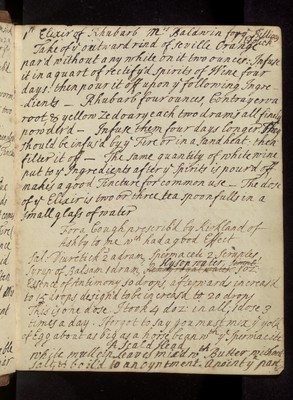 1st Elixir of Rhubarb Mr Baldwin for ye
Take of ye outward rind of Seville Orange
pard without any white on it two ounces. Infuse
it in a quart of rectify'd spirits of Wine four
days: then pour it off upon ye following Ingre-
dients — Rhubarb four ounces, Contrayerva
root & yellow Zedoary each two drams all finely
powderd — Infuse them four days longer they
should be infus'd by ye Fire or in a sand heat. then
filter it off — The same quantity of white wine
put to ye Ingredients after ye Spirits is pour'd off
makes a good Tincture for common use — The dose
of ye Elixir is two or three tea spoonfulls in a
small glass of water
For a Cough prescrib'd by Kirkland of
Ashby to be wch had a good Effect
Sal: Diuretick 2 drams Spermaceti 2 scruples
Syrup of Balsam 1 dram, Hyson water 5 oz
Essence of Antimony 30 drops, afterwards increas'd
to 15 drops design'd to be increas'd to 20 drops
This is one dose. I took 4 oz in all, 1 dose 3
times a day. I forgot to say you must mix ye yolk
of Egg about as big as a horse bean wth ye Spermaceti
A Scald Head
white mullein leaves mix'd wth Butter without
Salt & boild to an oyntment. Anoint ye part